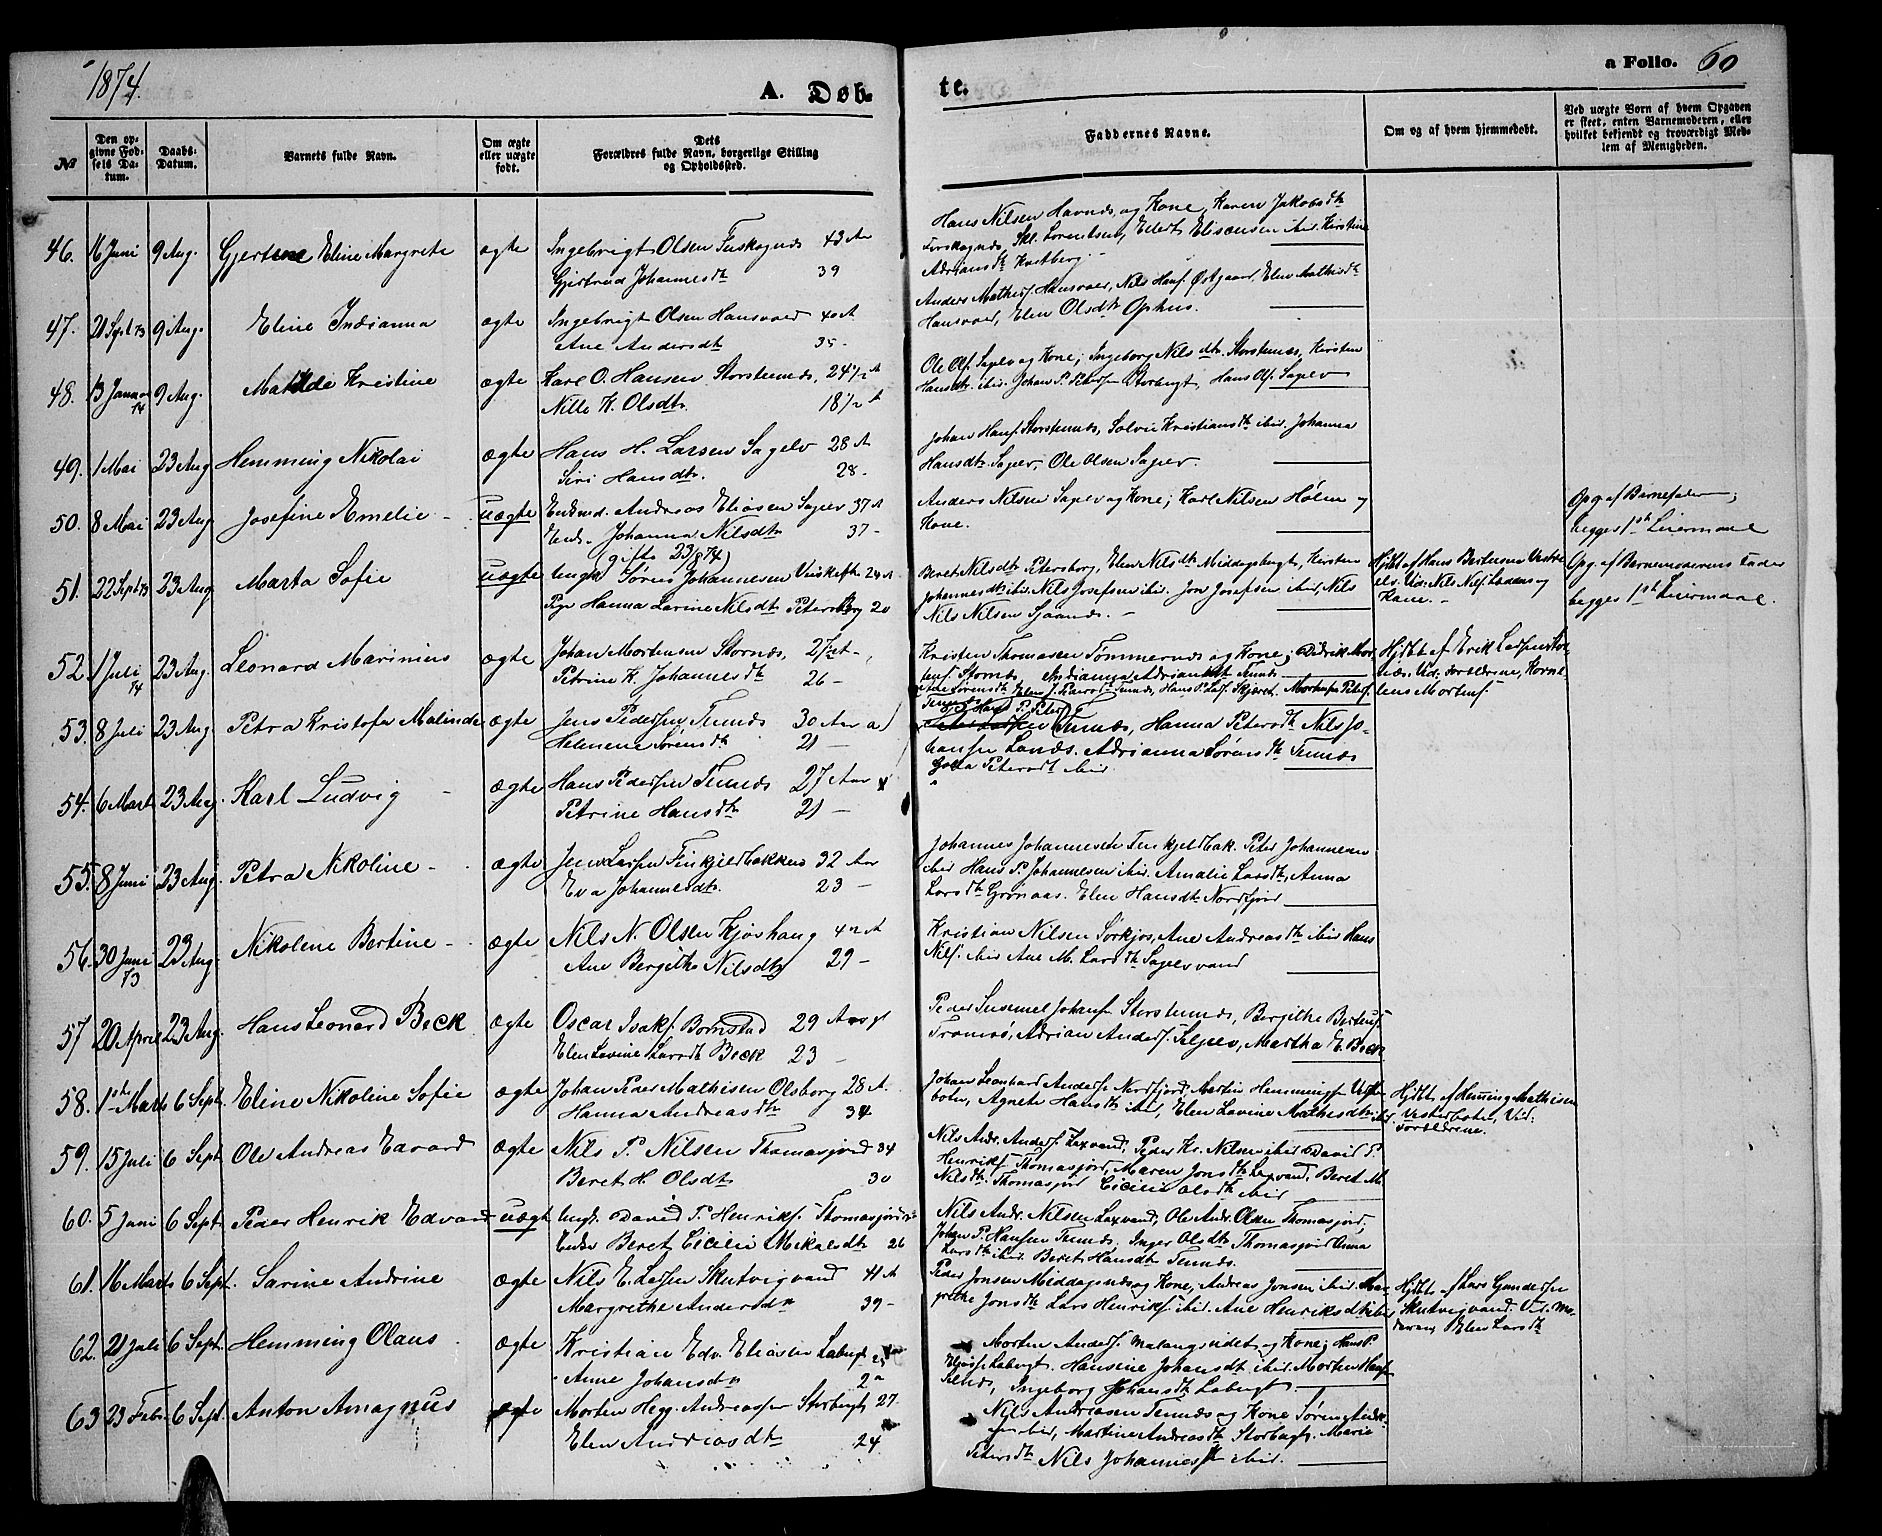 1874.
A. Døb-
te.
a Folio. 60
No
Den op-
givne Fød-
sels Da-
tum.
Daabs-
Datum.
Barnets fulde Navn.
Om ægte
eller uægte
født.
Dets
Forældres fulde Navn, borgerlige Stilling
og Opholdssted.
Faddernes Navne.
Om og af hvem hjemmedøbt.
Ved uægte Børn af hvem Opgaven
er skeet, enten Barnemoderen, eller
hvilket bekjendt og troværdigt Med-
lem af Menigheden.
46. 16 Juni 9 Aug. Gjertine Eline Margrete ægte Ingebrigt Olsen 43 Ar
Gjertrud Johannesdt 39
Hans Nilsen Havnæs og Kone, Karen Jakobsdt
Lorentsen, Ellert Eliseussen ibid. Kirstine
Adriansdt
47. 21 Sept 73 9 Aug. Eline Indianna ægte Ingebrigt Olsen Hansvold 40 A
Ane Andersdt 35 -
Anders Mathisf. Hansvold, Nils Hansf. Østgaard, Elen Mathisdt
Hansvold, Elen Olsdt Ophus.
48. 13 Januar 74 9 Aug. Matilde Kristine ægte Karl O. Hansen Storstennæs, 24 1/2 A
Nille K. Olsdt. 18 1/2 A
Ole Olsf. Sagelv og Kone; Ingeborg Nilsdt. Storstennæs, Kirsten
Hansdt. ibid. Johan P. Petersen Storbugt, Hans Olsf. Sagelv
49. 1 Mai 23 Aug Hemming Nikolai ægte Hans H. Larsen Sagelv 28 A
Siri Hansdt. 28 -
Johan Hansf. Storstennæs, Solvie Kristiansdt ibid. Johanna
Hansdt. Sagelv, Ole Olsen Sagelv.
50. 8 Mai 23 Aug Josefine Emelie - uægte Enkmd. Andreas Eliasen Sagelv 37 A
Enke Johanna Nilsdt 37 -
(gifte 23/8 74)
Anders Nilsen Sagelv og Kone; Karl Nilsen Holm og
Kone.
Opg. af Barnefader;
begges 1ste Leiermaal
51. 22 Sept 73 23 Aug Marta Sofie uægte Ungk. Søren Johannesen 24 A
Pige Hanna Larine Nilsdt Petersborg 20
Beret Nilsdt Petersborg, Elen Nilsdt Middagsbugt, Kirsten
Johannesdt ibid. Nils Josefsen ibid. Jon Josefsen ibid, Nils
Nils Nilsen
Hjdbt af Hans Bertensen
Vid: Nils Nilsf. og
Kone. -
Opg. af Barnemoderens Fader
begges 1ste Leiermaal.
52. 1 Juli 74 23 Aug. Leonard Marinius ægte Johan Mortensen Stornæs, 27 A -
Petrine K. Johannesdt 26 -
Kristen Thomasen Tømmernes og Kone; Didrik Mor-
tensf. Stornæs, Indianna Adriansdt Tennæs
Hjdbt af Erik
Vid. Forældrene, Korne-
lens Mortensf.
53. 8 Juli 23 Aug. Petra Kristofa Malinda ægte Jens Pedersen Tennæs 30 Aar
Helenene Sørensdt 21 -
Tennæs, Hanna Petersdt Nils Jo-
hansen Adrianna Sørensdt Tennæs
Petersdt ibid.
54. 6 Mart 23 Aug. Karl Ludvig - ægte Hans Pedersen Tennæs 27 Aar
Petrine Hansdt 21 -
55. 8 Juni 23 Aug. Petra Nikoline - ægte Jens Larsen Finkjeldbakken 32 Aar
Eva Johannesdt. 23 -
Johannes Johannesen Finkjeldbak. Peter Johannesen
ibid Hans P. Johannesen ibid. Amalie Larsdt, Anna
Larsdt Grønaas. Elen Hansdt Nordfjord
56. 30 Juni 73 23 Aug. Nikolene Bertine - ægte Nils N. Olsen Kjøshaug 42 A
Ane Bergithe Nilsdt 29 -
Kristian Nilsen Sørkjos, Ane Andreasdt ibid Hans
Nilsf. ibid Ane M. Larsdt Sagelvvand
57. 20 April 23 Aug. Hans Leonard Beck ægte Oscar Isakf. Bomstad 29 Aar gl
Elen Lavine Larsdt Beck 23 -
Peder Susemel Johansf Storstennæs, Bergithe
Tromsø, Adrian Andersf. Seljelv, Martha E. Beck
58. 1ste Marts 6 Sept. Eline Nikoline Sofie ægte Johan Peder Mathisen Olsborg 28 A.
Hanna Andreasdt 34
Johan Leonhard Andersf Nordfjord, Martin Hemmingsen Vester-
botn, Agnete Hansdt ibid, Elen Lavine Mathisdt ibid.
Hjdbt af Hemming Mathisen
Vesterbotn, Vid:
Forældrene.
59. 15 Juli 6 Sept Ole Andreas Edvard ægte Nils P. Nilsen Thomasjord 34
Beret H. Olsdt 30
Nils Andr. Andersf. Laxvand, Peder Kr. Nilsen ibid David P.
Henriksf Thomasjord, Maren Jonsdt Laxvand, Beret M.
Nilsdt. Thomasjord Cicilie Olsdt ibid
60. 5 Juni 6 Sept. Peder Henrik Edvard uægte Ungk. David P. Henriksf. Thomasjord
Enke Beret Cicilie Mikalsdt 26
Nils Andr. Nilsen Laxvand, Ole Andr. Olsen Thomasjord,
Johan P. Hansen Tennæs. Inger Olsdt Thomasjord Anna
Larsdt ibid. Beret Hansdt Tennæs.
61. 16 Marts 6 Sept. Sarine Andrine ægte Nils E. Larsen Skutvigvand 41 A
Margrethe Andersdt 39 -
Peder Jonsen Middagsnæs og Kone, Andreas Jonsen ibid. Mar-
grethe Jonsdt Lars Henriksf. ibid. Ane Henriksdt ibid
Hjdbt af Lars Gundersen
Skutvigvand. Vid. Mo-
deren, Elen Larsdt
62. 21 Juli 6 Sept. Hemming Olaus ægte Kristian Edv. Eliasen Labugt 25
Anne Johansdt
Morten Andersf. Malangseidet og Kone; Hans P.
Eliasf. Labugt. Hansine Johansdt ibid. Morten Hansf
Ingeborg Johansdt Labugt.
63 23 Febr 6 Sept. Anton Amagnus ægte Morten Hegg Andreassen Storbugt 27.
Elen Andreasdt 24
Nils Andreasen Tennæs og Kone Søren Andr-
ibid, Martine Andreasdt Storbugt, Marie
Petersdt Nils Johannessen ibid.